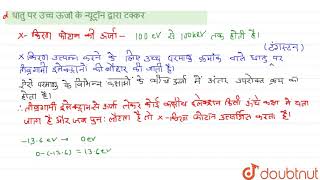 d धातु पर उच्च ऊर्जा के न्यूट्रॉन द्वारा टक्कर
X- किरण फोटान की ऊर्जा- 100 eV से 100keV तक होती है।
(टंगस्टन)
X किरण उत्पन्न करने के लिए उच्च परमाणु क्रमांक वाले धातु पर
तीव्रगामी इलेक्ट्रानों की बौछार की जाती है।
ऐसे परमाणु के विभिन्न कक्षाओं के बीच ऊर्जा में अंतर उपरोक्त क्रम का
होता है।
तीव्रगामी इलेक्ट्रान से ऊर्जा लेकर कोई कक्षीय इलेक्ट्रान किसी ऊंचे कक्षा में चला
जाता है और जब पुनः लौटता है तो X-किरण फोटान उत्सर्जित करता है।
-13.6 eV → 0eV
0-(-13.6) = 13.6eV
doubtnut